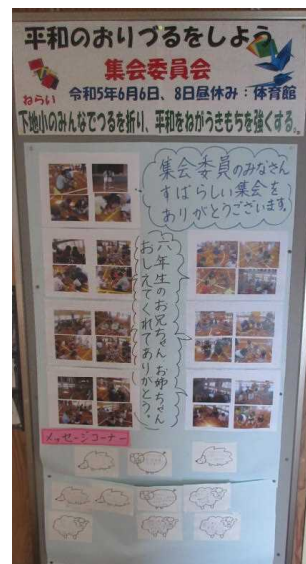 平和のおりづるをしよう
集会委員会
ねらい
令和5年6月6日、8日昼休み：体育館
下地小のみんなでつるを折り、平和をねがうきもちを強くする。
集会委員のみなさん
すばらしい集会を
ありがとうございます。
六年生のお兄ちゃん お姉ちゃん
おしえてくれてありがとう。
メッセージコーナー